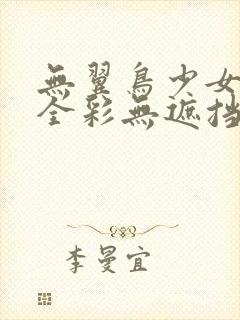 無翼鳥少女
全彩無遮挡
李曼宜